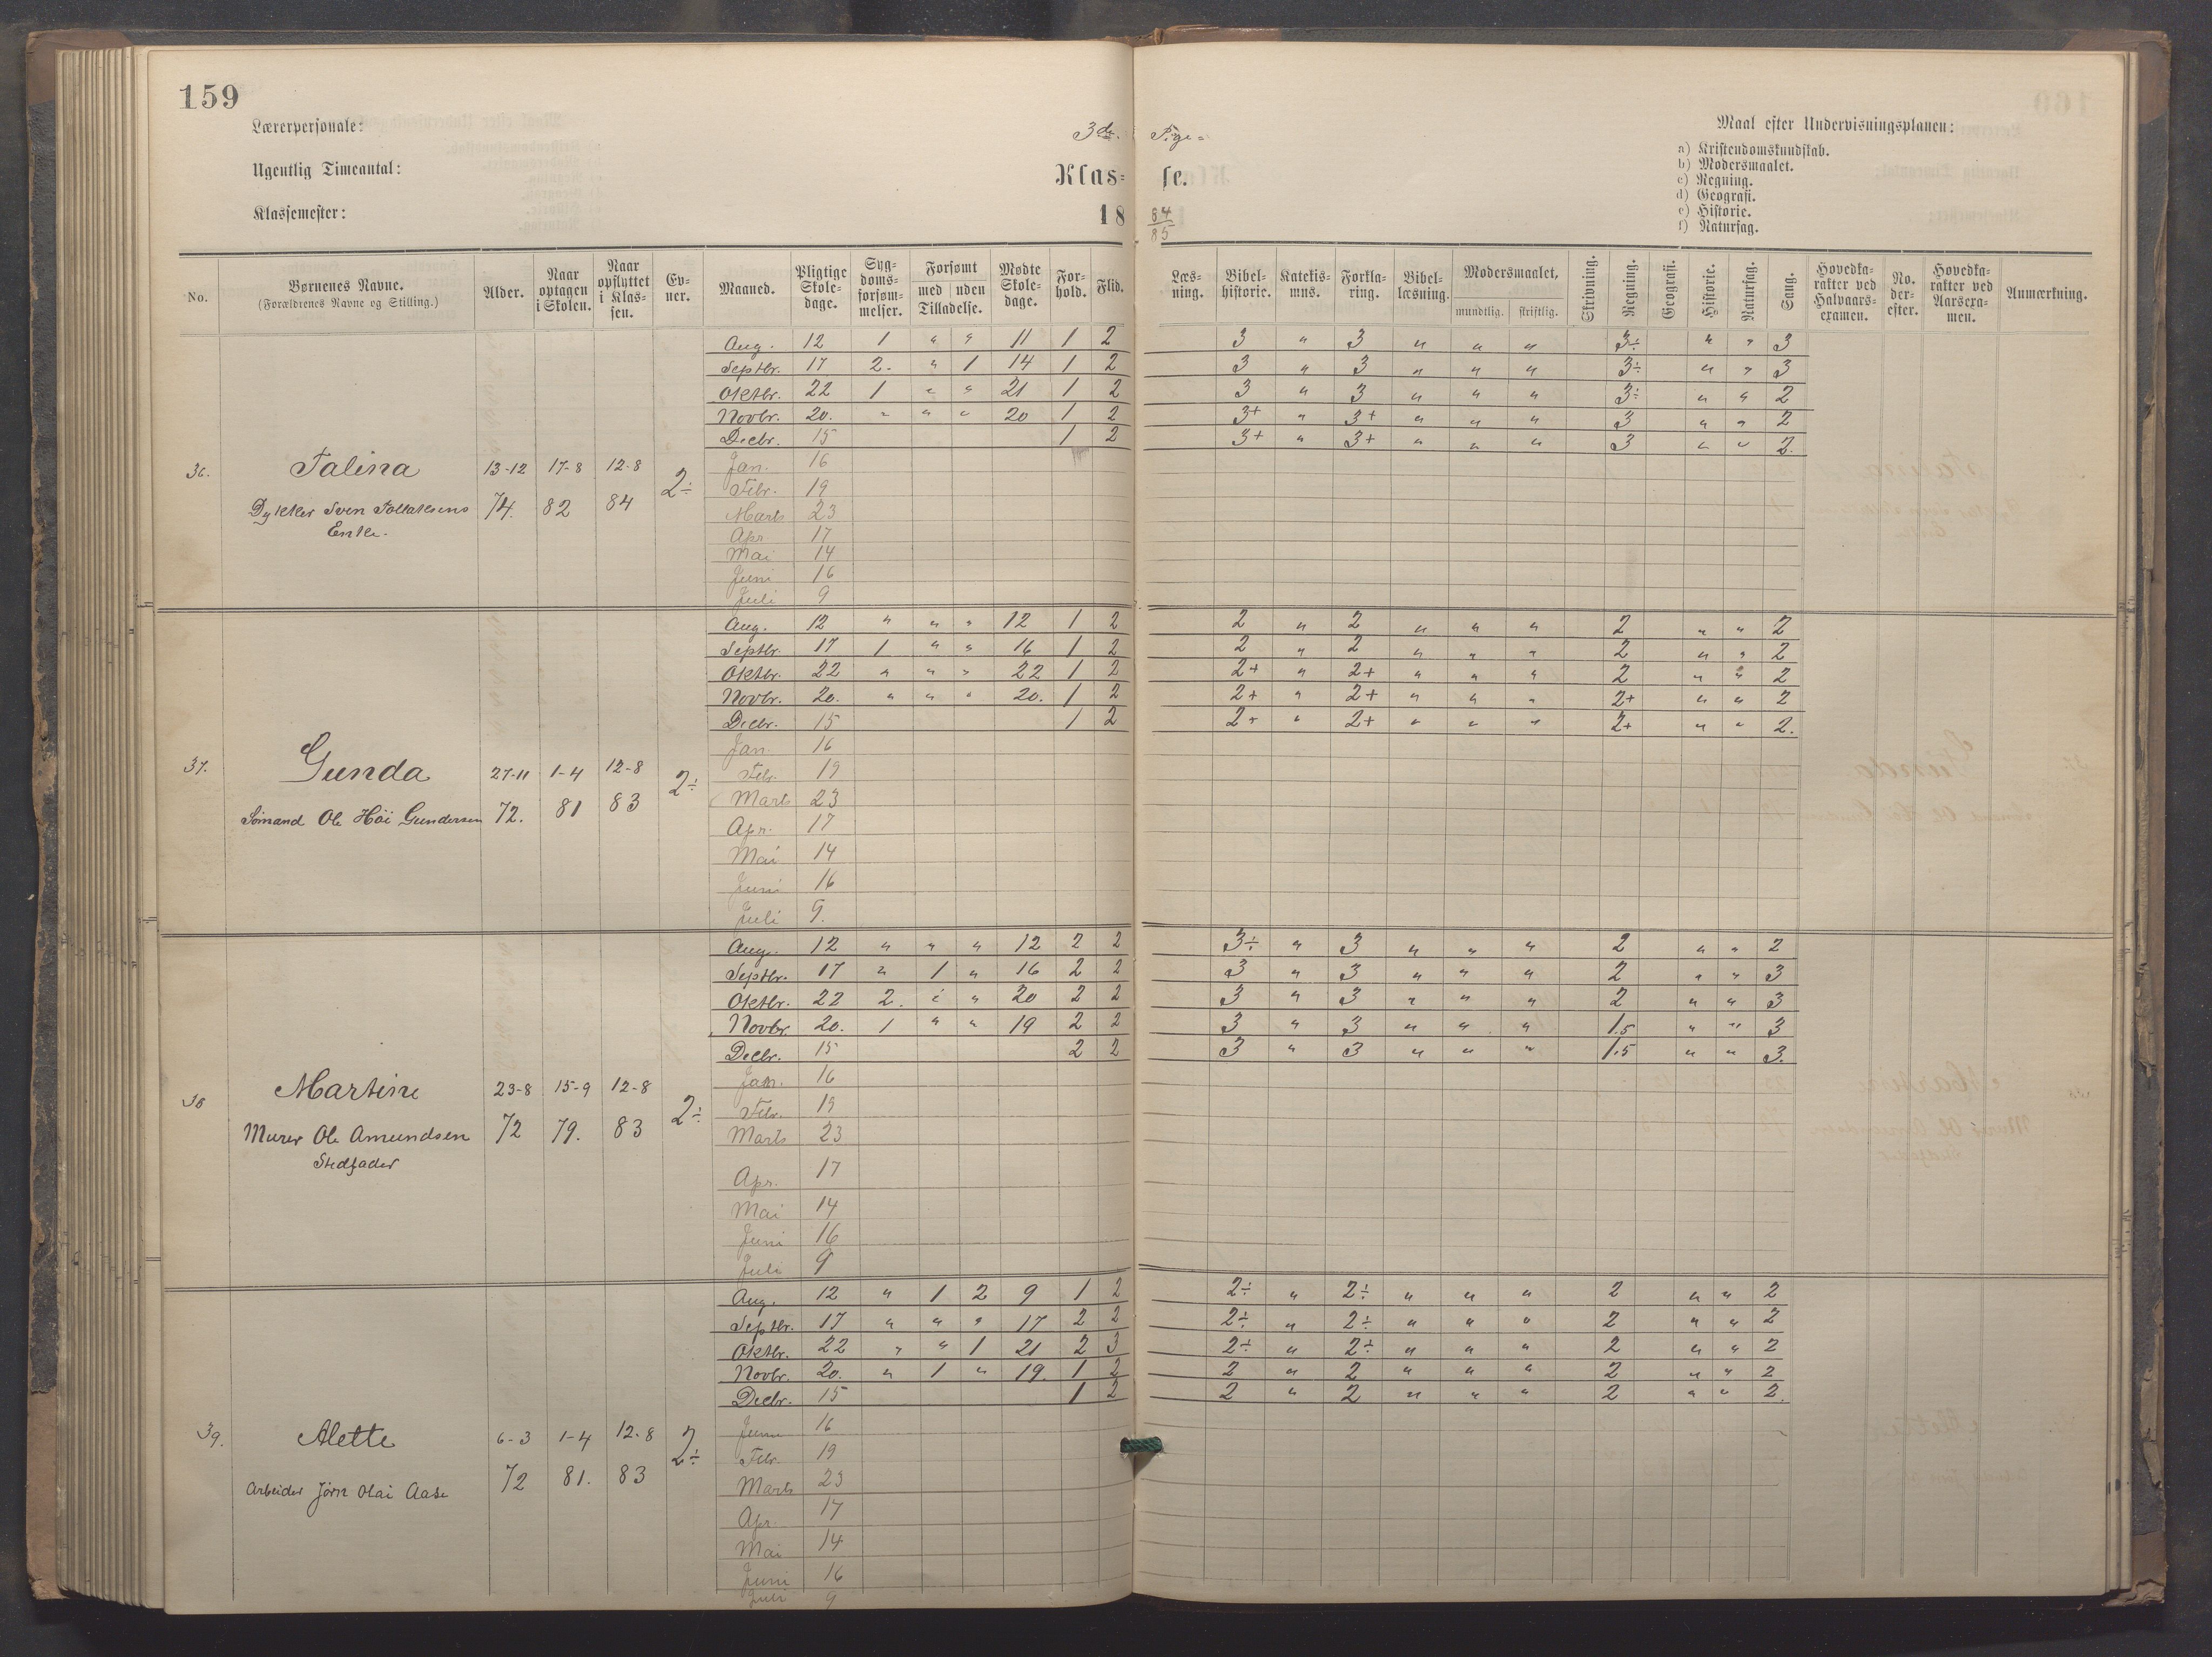 159
Lærerpersonale:
Ugentlig Timeantal:
Klassemester:
3die Pige=
Klas= se.
18 84/85
Maal efter Undervisningsplanen:
a) Kristendomskundskab.
b) Modersmaalet.
c) Regning.
d) Geografi.
e) Historie.
f) Naturfag.
No. | Børnenes Navne. (Forældrenes Navne og Stilling.) | Alder. | Naar optagen i Skolen. | Naar opflyttet i Klas- sen. | Ev- ner. | Maaned. | Pligtige Skole- dage. | Syg- doms- forsøm- melser. | Forsømt med uden Tilladelse. | Mødte Skole- dage. | For- hold. | Flid. | Læs- ning. | Bibel- historie. | Katekis- mus. | Forkla- ring. | Bibel- læsning. | Modersmaalet, mundtlig. skriftlig. | Skrivning. | Regning. | Geografi. | Historie. | Naturfag. | Sang. | Hovedka- rakter ved Halvaars- examen. | No. der- efter. | Hovedka- rakter ved Aarsexa- men. | Anmærkning.
Aug. 12 1 " " 11 1 2 3 " 3 " " " 3÷ " " 3
Septbr. 17 2. " 1 14 1 2 3 " 3 " " " 3÷ " " 3
Oktbr. 22 1 " " 21 1 2 3 " 3 " " " 3÷ " " 2
Novbr. 20. " " " 20 1 2 3+ " 3+ " " " 3 " " 2
Decbr. 15 1 2 3+ " 3+ " " " 3 " " 2.
36. Talina 13-12 74. 17-8 82 12-8 84 2÷
Dykker Sven Tollaksens
Enke.
Jan. 16
Febr. 19
Marts 23
Apr 17
Mai 14
Juni 16
Juli 9
Aug. 12 " " " 12 1 2 2 " 2 " " " 2 " " 2
Septbr. 17 1 " " 16 1 2 2 " 2 " " " 2 " " 2
Oktbr. 22 " " " 22 1 2 2+ " 2+ " " " 2 " " 2
Novbr. 20. " " " 20. 1 2 2+ " 2+ " " " 2+ " " 2
Decbr. 15 1 2 2+ " 2+ " " " 2+ " " 2.
37. Gunda 27-11 72. 1-4 81 12-8 83 2÷
Sømand Ole Höi Gundersen
Jan. 16
Febr. 19
Marts 23
Apr. 17
Mai 14
Juni 16
Juli 9.
Aug. 12 " " " 12 2 2 3÷ " 3 " " " 2 " " 2
Septbr. 17 " 1 " 16 2 2 3 " 3 " " " 2 " " 3
Oktbr. 22 2. " " 20 2 2 3 " 3 " " " 2 " " 3
Novbr. 20. 1 " " 19 2 2 3 " 3 " " " 1.5 " " 3
Decbr. 15 2 2 3 " 3 " " " 1.5 " " 3.
38 Martine 23-8 72 15-9 79. 12-8 83 2÷
Murer Ole Amundsen
Stedfader
Jan. 16
Febr. 19
Marts 23
Apr. 17
Mai 14
Juni 16
Juli 9
Aug. 12 " 1 2 9 1 2 2÷ " 2÷ " " " 2 " " 2
Septbr. 17 " " " 17 2 2 2÷ " 2÷ " " " 2 " " 2
Oktbr. 22 " " 1 21 2 3 2÷ " 2÷ " " " 2 " " 2
Novbr. 20. " 1 " 19. 1 2 2 " 2 " " " 2 " " 2
Decbr. 15 1 2 2 " 2 " " " 2 " " 2.
39. Alette 6-3 72 1-4 81. 12-8 83 2÷
Arbeider Jörn Olai Aase
16
Febr. 19
Marts 23
Apr. 17
Mai 14
Juni 16
Juli 9